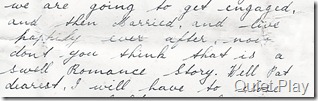 we are going to get engaged,
and then Married, and live
happily ever after, now
don't you think that is a
swell Romance Story. Well Pat
dearest, I will have to
Quiet Play